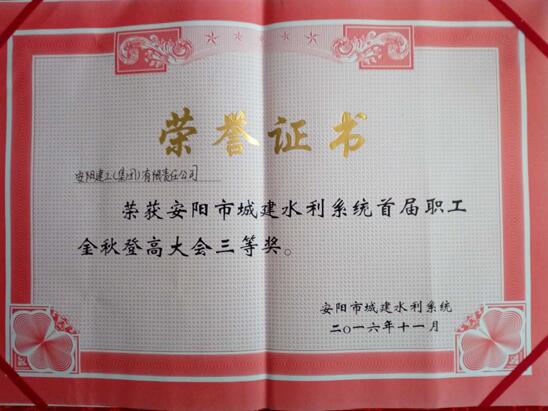 荣誉证书
安阳建工(集团)有限责任公司
荣获安阳市城建水利系统首届职工
金秋登高大会三等奖。
安阳市城建水利系统
二〇一六年十一月